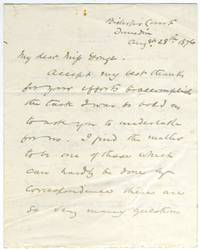 Bishop's Court
Dunedin
Aug 28th 1876
My dear Miss
Accept my best thanks
for your efforts to accomplish
the task I was so bold as
to ask you to undertake
for me. I find the matter
to be one of those which
can hardly be done by
correspondence there are
so very many questions